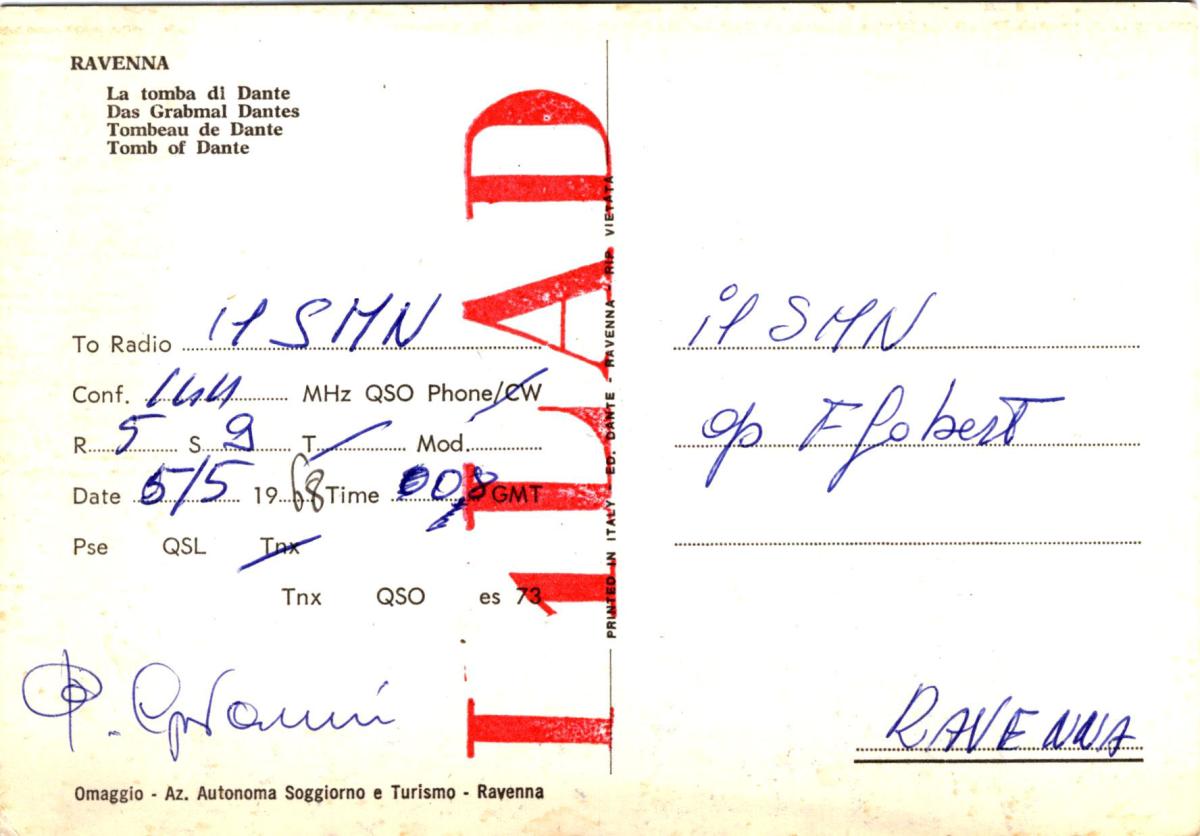 RAVENNA
La tomba di Dante
Das Grabmal Dantes
Tombeau de Dante
Tomb of Dante
I1LAD
To Radio i1 SMN
Conf. 144 MHz QSO Phone/CW
R. 5 S. 9 T. Mod.
Date 5/5 1968 Time GMT
Pse QSL Tnx
Tnx QSO es 73
Omaggio - Az. Autonoma Soggiorno e Turismo - Ravenna
PRINTED IN ITALY - ED. DANTE - RAVENNA - RIP. VIETATA
i1 SMN
op
RAVENNA